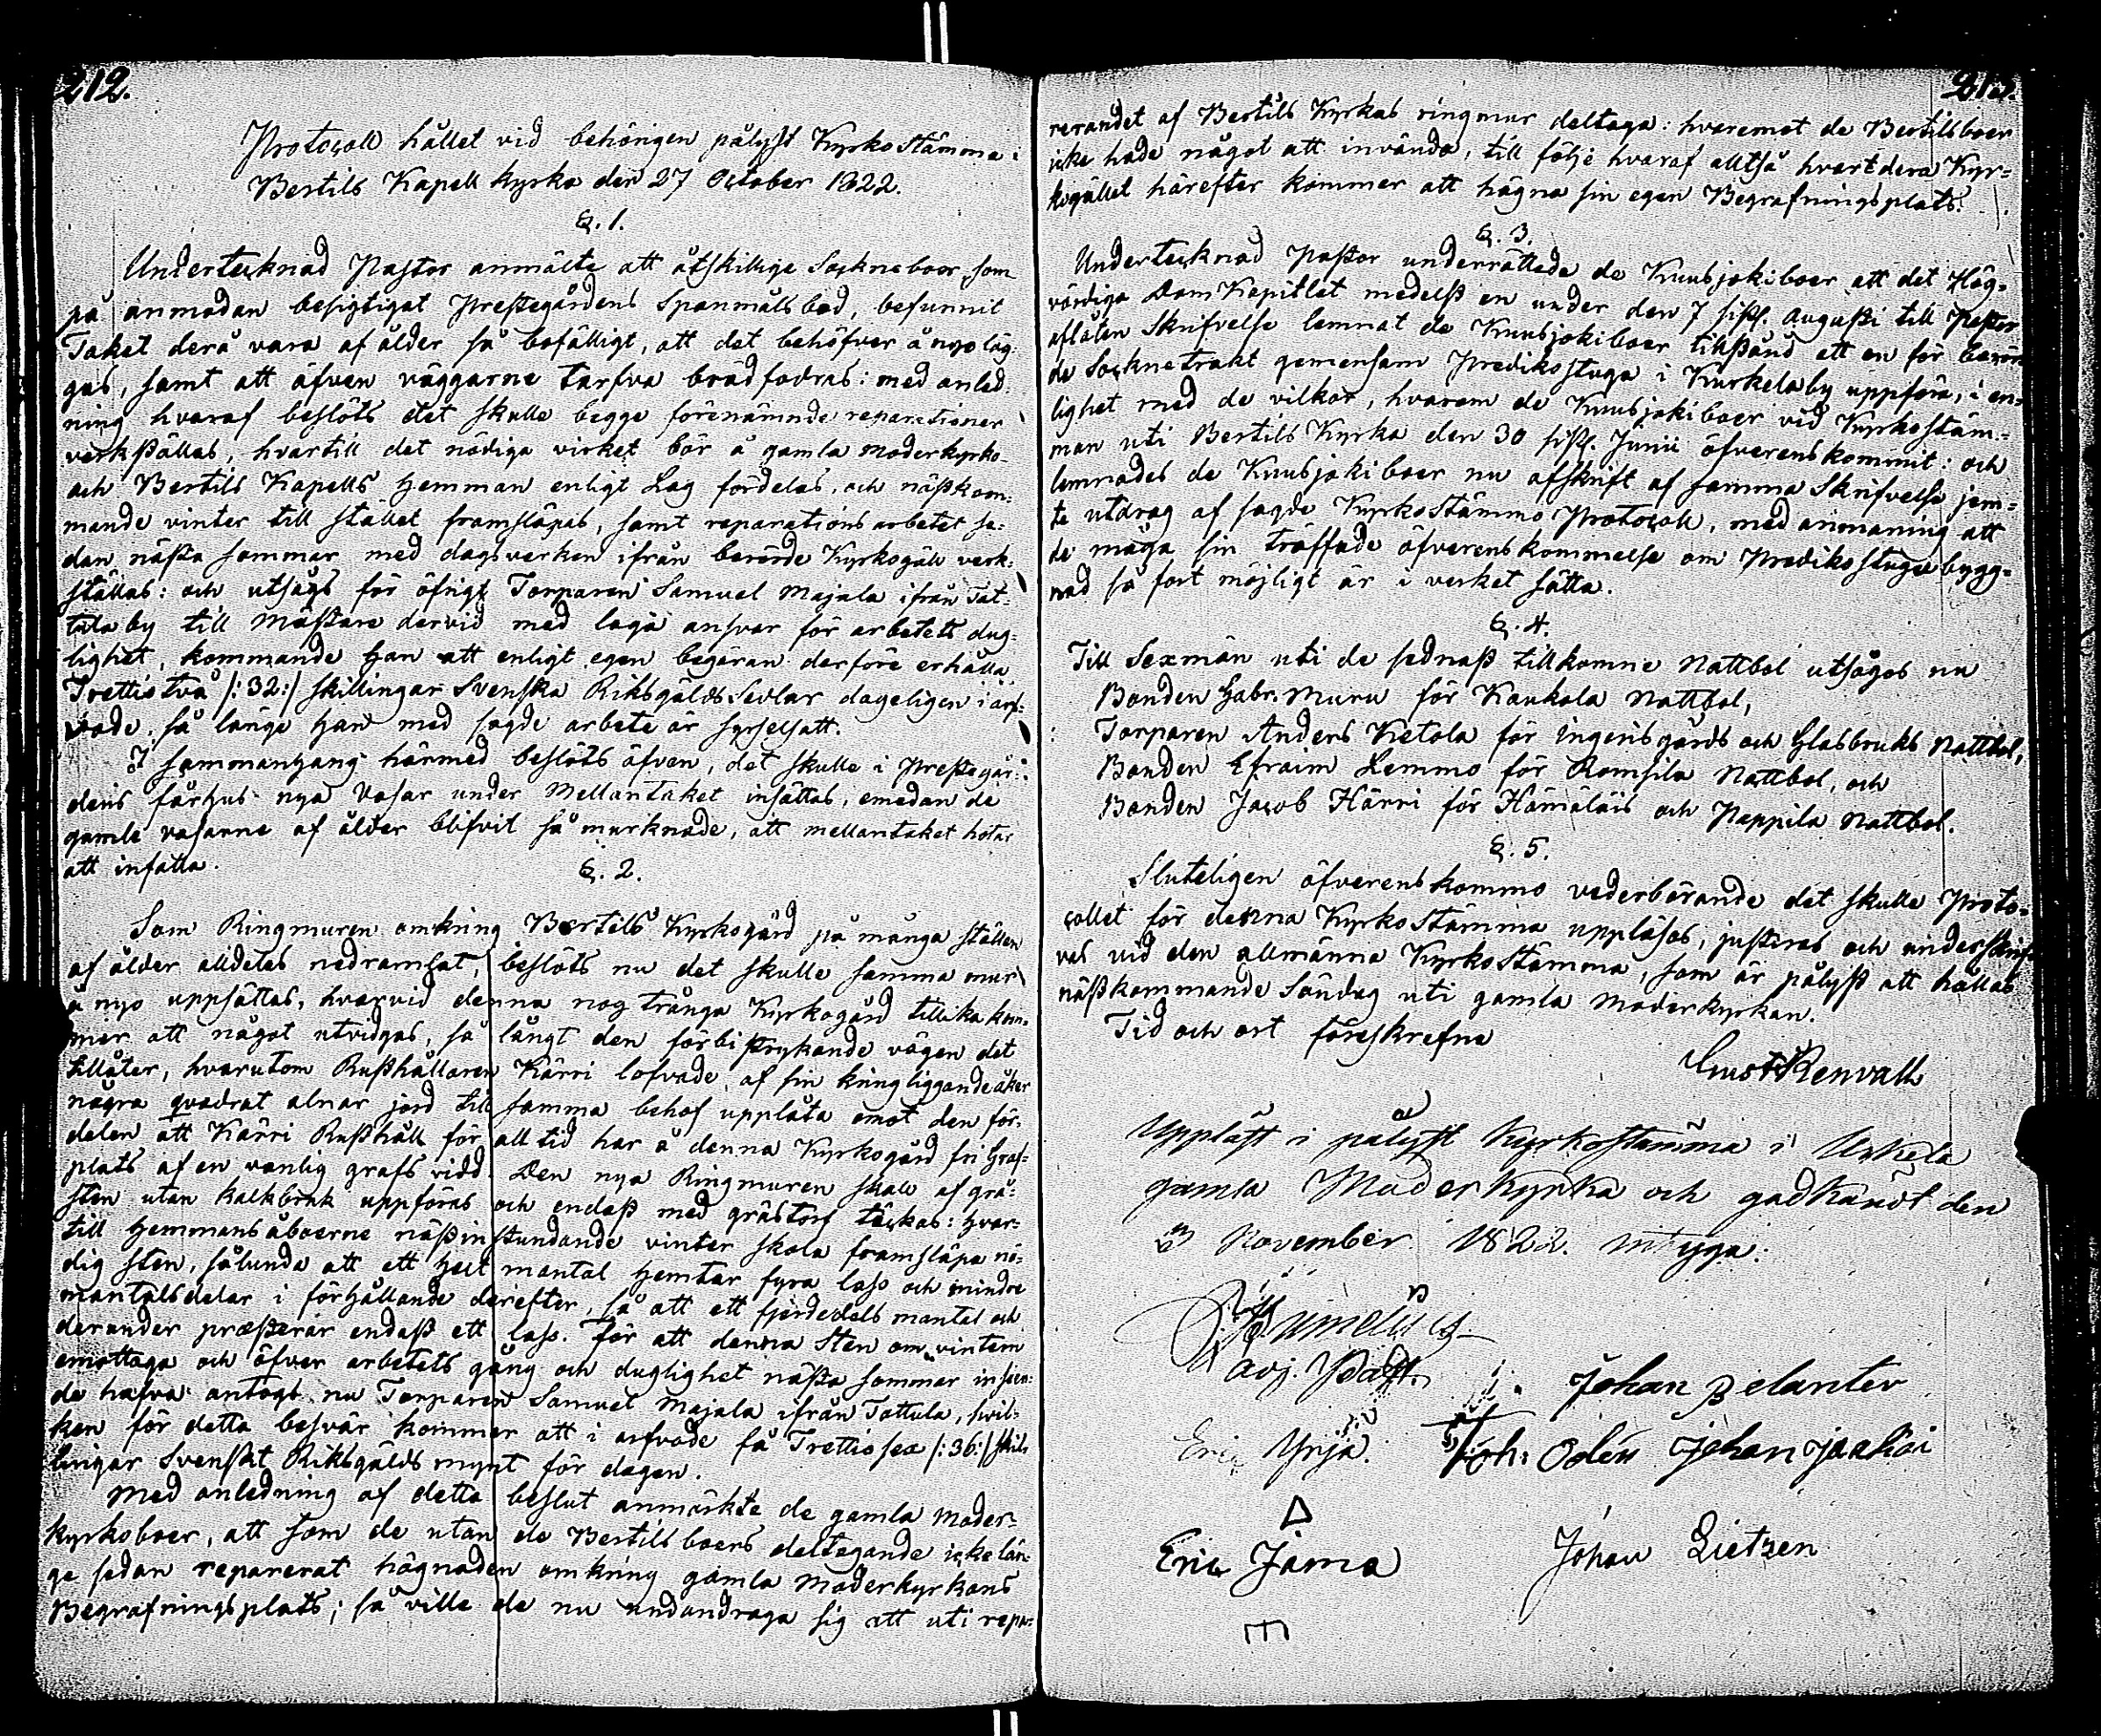 212.
Protocoll hållet vid behörigen pålyst Kyrkostämma i
Bertils Kapell kyrka den 27 October 1822.
§. 1.
Undertecknad Pastor anmälte att åtskillige Sockneboer, som
på anmodan besigtigat Prestegårdens Spanmåls bod, befunnit
Taket derå vara af ålder så bofälligt, att det behöfver å nyo läg-
gas, samt att äfven väggarne tarfva brädfodras: med anled-
ning hvaraf beslöts det skulle begge förenämnde reparationer
verkställas, hvartill det nödiga virket bör å gamla moderkyrko-
och Bertils Kapells Hemman enligt Lag fördelas, och nästkom-
mande vinter till stället framsläpas, samt reparations arbetet se-
dan nästa sommar med dagsverken ifrån berörde Kyrkogäll verk-
ställas: och utsågs för öfrigt Torparen Samuel Majala ifrån Tat-
tula by till Mästare dervid med laga ansvar för arbetets dug-
lighet, kommande han att enligt egen begäran derföre erhålla
Trettiotvå /:32:/ skillingar Svenska Riksgälds Sedlar dageligen i arf-
vode, så länge han med sagde arbete är sysselsatt.
I sammanhang härmed beslöts äfven, det skulle i Prestegår-
dens fårhus nya Vasar under Mellantaket insättas, emedan de
gamle vasarne af ålder blifvit så murknade, att mellantaket hotar
att infalla.
§. 2.
Som Ringmuren omkring Bertils Kyrkogård på många ställen
af ålder alldeles nedramlat, beslöts nu det skulle samma mur
å nyo uppsättas, hvarvid denna nog trånga Kyrkogård tillika kom-
mer att något utvidgas, så långt den förbi strykande vägen det
tillåter, hvarutom Rusthållaren Kärri lofvade, af sin kringliggande åker
några qvadrat alnar jord till samma behof upplåta emot den för-
delen att Kärri Rusthåll för all tid har å denna Kyrkogård fri Graf-
plats af en vanlig grafs vidd. Den nya Ringmuren skall af grå-
sten utan kalkbruk uppföras och endast med grästorf täckas: hvar-
till Hemmansåboerne nästinstundande vinter skola framsläpa nö-
dig sten, sålunda att ett helt mantal hemtar fyra lass och mindre
mantalsdelar i förhållande derefter, så att ett fjerdedels mantal och
derunder præsterar endast ett lass. För att denna sten om vintern
emottaga och öfver arbetets gång och duglighet nästa sommar inseen-
de hafva antogs nu Torparen Samuel Majala ifrån Tattula, hvil-
ken för detta besvär kommer att i arfvode få Trettiosex /:36:/ skil-
lingar Svenskt Riksgälds mynt för dagen.
Med anledning af detta beslut anmärkte de gamla Moder-
kyrkoboer, att som de utan de Bertils boers deltagande icke län-
ge sedan reparerat hägnaden omkring gamla moderkyrkans
Begrafningsplats; så ville de nu undandraga sig att uti repa-
rerandet af Bertils Kyrkas ringmur deltaga: hvaremot de Bertilsboer
icke hade något att invända, till följe hvaraf alltså hvartdera Kyr-
kogället härefter kommer att hägna sin egen Begrafningsplats.
§. 3.
Undertecknad Pastor underrättade de Kuusjokiboer att det Hög-
vördiga Dom Kapitlet medelst en under den 7 sistl. Augusti till Pastor
aflåten Skrifvelse lemnat de Kuusjokiboer tillstånd att en för berör-
de Socknetrakt gemensam Predikostuga i Kurkela by uppföra, i en-
lighet med de vilkor, hvarom de Kuusjokiboer vid Kyrkostäm-
man uti Bertils Kyrka den 30 sistl. Junii öfverenskommit: och
lemnades de Kuusjokiboer nu afskrift af samma Skrifvelse jem-
te utdrag af sagde Kyrkostämmo Protocoll, med anmaning att
de måga sin träffade öfverenskommelse om Predikostugu bygg-
nad så fort möjligt är i verket sätta.
§. 4.
Till Sexmän uti de sednast tillkomne Nattbol utsågos nu
Bonden Gabr. Muru för Kaukola Nattbol,
Torparen Anders Ketola för Ingerisgårds och Glasbruks Nattbol,
Bonden Efraim Lemmo för Romsila Nattbol, och
Bonden Jacob Härri för Hämäläis och Pappila Nattbol.
§. 5.
Sluteligen öfverenskommo vederbörande det skulle Proto-
collet för denna Kyrkostämma uppläsas, justeras och underskrif-
vas vid den allmänna Kyrkostämma, som är pålyst att hållas
nästkommande Söndag uti gamla Moderkyrkan.
Tid och ort föreskrefne
Gust Renvall
Uppläst i pålyst Kyrkostämma i Uskela
gamla Moderkyrka och godkändt den
3 November 1822. intyga:
adj. Past.
Johan Zelanter
Eric Yrjä. Joh: Odén Johan Jaakoi
Eric Jama Johan Lietzen